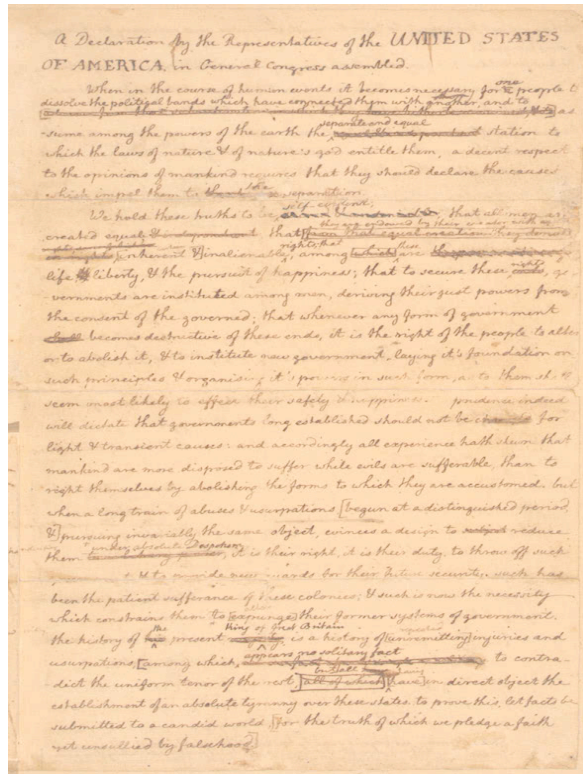 A Declaration by the Representatives of the UNITED STATES
OF AMERICA, in General Congress assembled.
When in the course of human events it becomes necessary for one people to
dissolve the political bands which have connected them with another, and to
as-
separate and equal
-sume among the powers of the earth the station to
which the laws of nature & of nature's god entitle them, a decent respect
to the opinions of mankind requires that they should declare the causes
which impel them to the separation.
self-evident;
We hold these truths to be that all men are
they are endowed by their creator with
created equal that from that equal creation they derive
rights; that these
inherent & inalienable among which are
rights
life liberty, & the pursuit of happiness; that to secure these go-
-vernments are instituted among men, deriving their just powers from
the consent of the governed; that whenever any form of government
shall becomes destructive of these ends, it is the right of the people to alter
or to abolish it, & to institute new government, laying it's foundation on
such principles & organising it's powers in such form, as to them
seem most likely to effect their safety & happiness. prudence indeed
will dictate that governments long established should not be changed for
light & transient causes: and accordingly all experience hath shewn that
mankind are more disposed to suffer while evils are sufferable, than to
right themselves by abolishing the forms to which they are accustomed. but
when a long train of abuses & usurpations [begun at a distinguished period,
&] pursuing invariably the same object, evinces a design to reduce
under absolute Despotism
them it is their right, it is their duty, to throw off such
& to provide new guards for their future security. such has
been the patient sufferance of these colonies; & such is now the necessity
alter
which constrains them to [expunge] their former systems of government.
the King of Great Britain
the history of his present is a history of [unremitting] injuries and
appears no solitary fact
usurpations, [among which, to contra-
in direct
-dict the uniform tenor of the rest, all of which [have] in direct object the
establishment of an absolute tyranny over these states. to prove this, let facts be
submitted to a candid world [for the truth of which we pledge a faith
yet unsullied by falsehood]